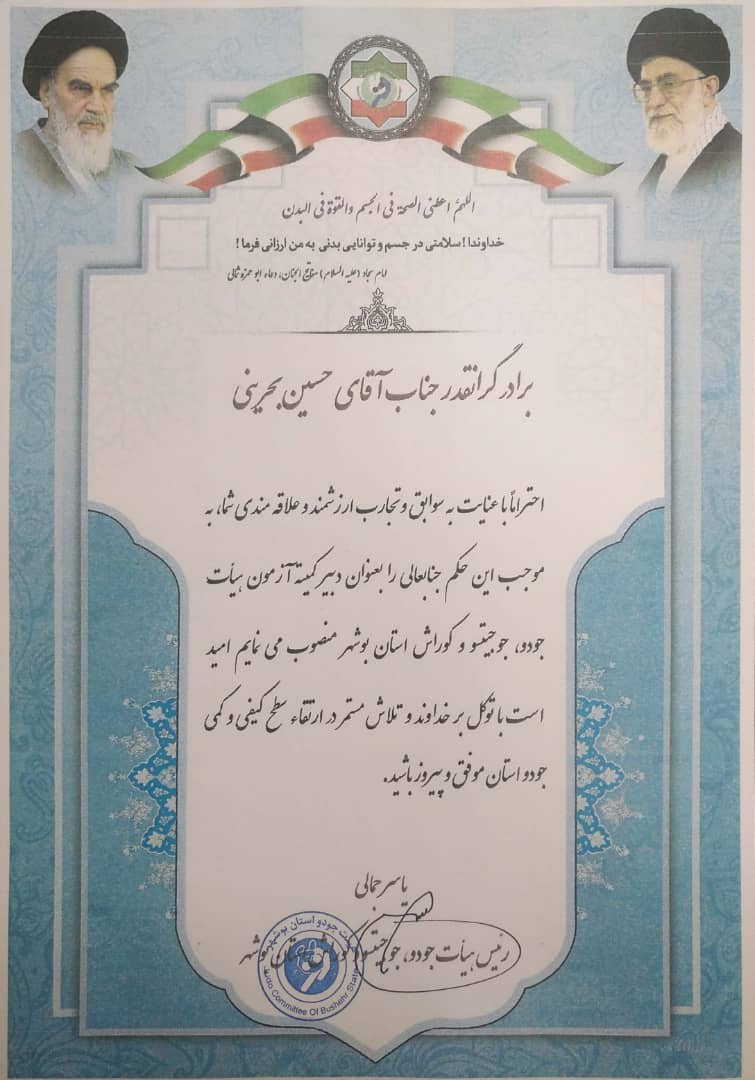 اللهم اعطنی الصحة فی الجسم والقوة فی البدن
خداوندا ! سلامتی در جسم و توانایی بدنی به من ارزانی فرما !
امام سجاد (علیه السلام) مفاتیح الجنان، دعاء ابو حمزه ثمالی
برادر گرانقدر جناب آقای حسین بحرینی
احتراماً با عنایت به سوابق و تجارب ارزشمند و علاقه مندی شما، به
موجب این حکم جنابعالی را بعنوان دبیر کمیته آزمون هیأت
جودو، جوجیتسو و کوراش استان بوشهر منصوب می نمایم امید
است با توکل بر خداوند و تلاش مستمر در ارتقاء سطح کیفی و کمی
جودو استان موفق و پیروز باشید.
یاسر جمالی
رئیس هیأت جودو، جوجیتسو و کوراش استان بوشهر
هیأت جودو استان بوشهر
Judo Committee Of Bushehr State